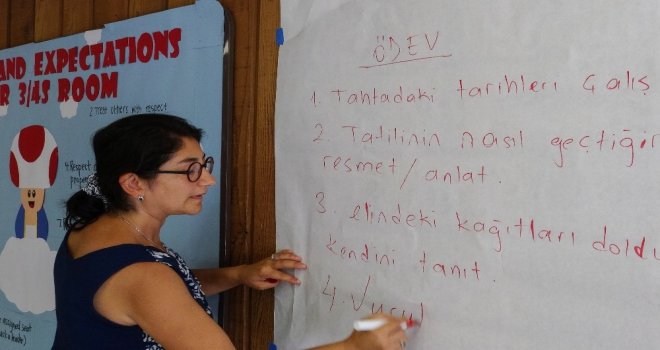 AND EXPECTATIONS
R 3/4S ROOM
2. Treat others with respect
ÖDEV
1. Tahtadaki tarihleri çalış
2. Tatilinin nasıl geçtiğin
resmet/anlat.
3. elindeki kağıtları doldu
kendini tanıt.
4. Vücu